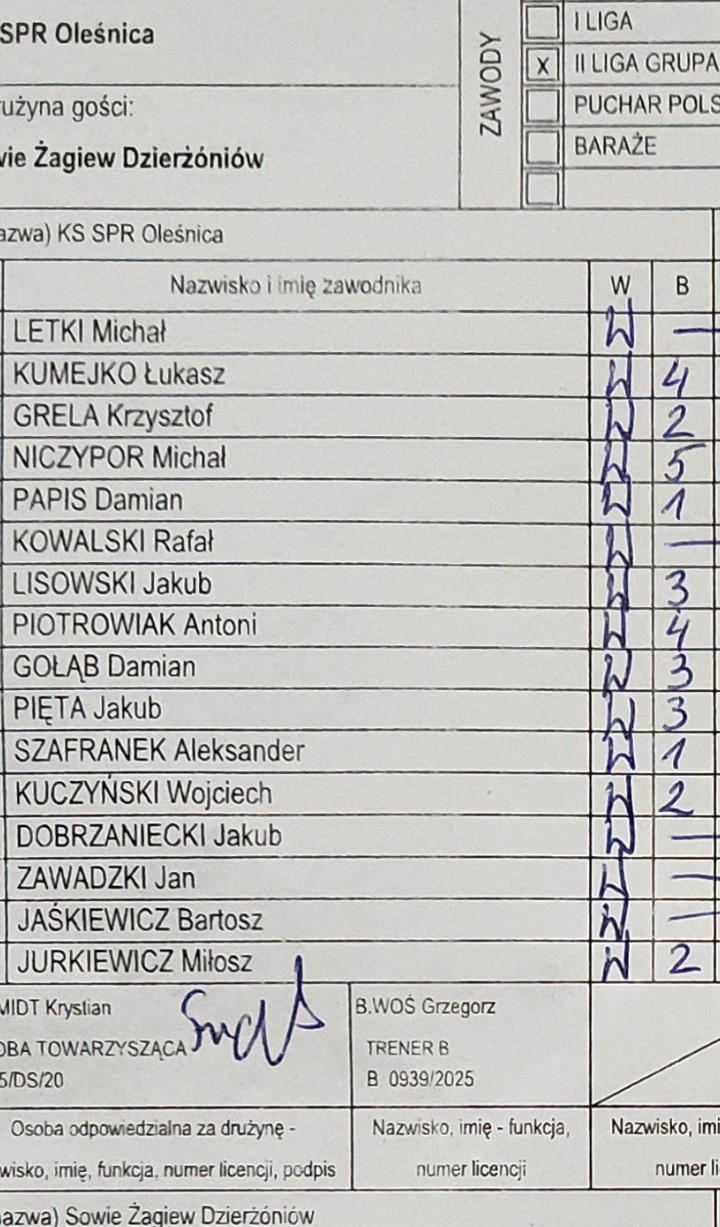 SPR Oleśnica
ZAWODY
I LIGA
X II LIGA GRUPA
PUCHAR POLS
BARAŻE
użyna gości:
wie Żagiew Dzierżóniów
azwa) KS SPR Oleśnica
Nazwisko i imię zawodnika W B
LETKI Michał W —
KUMEJKO Łukasz W 4
GRELA Krzysztof W 2
NICZYPOR Michał W 5
PAPIS Damian W 1
KOWALSKI Rafał W —
LISOWSKI Jakub W 3
PIOTROWIAK Antoni W 4
GOŁĄB Damian W 3
PIĘTA Jakub W 3
SZAFRANEK Aleksander W 1
KUCZYŃSKI Wojciech W 2
DOBRZANIECKI Jakub W —
ZAWADZKI Jan W —
JAŚKIEWICZ Bartosz W —
JURKIEWICZ Miłosz W 2
MIDT Krystian
OBA TOWARZYSZĄCA
5/DS/20
B.WOŚ Grzegorz
TRENER B
B 0939/2025
Osoba odpowiedzialna za drużynę -
wisko, imię, funkcja, numer licencji, podpis
Nazwisko, imię - funkcja,
numer licencji
Nazwisko, imi
numer li
nazwa) Sowie Żagiew Dzierżóniów